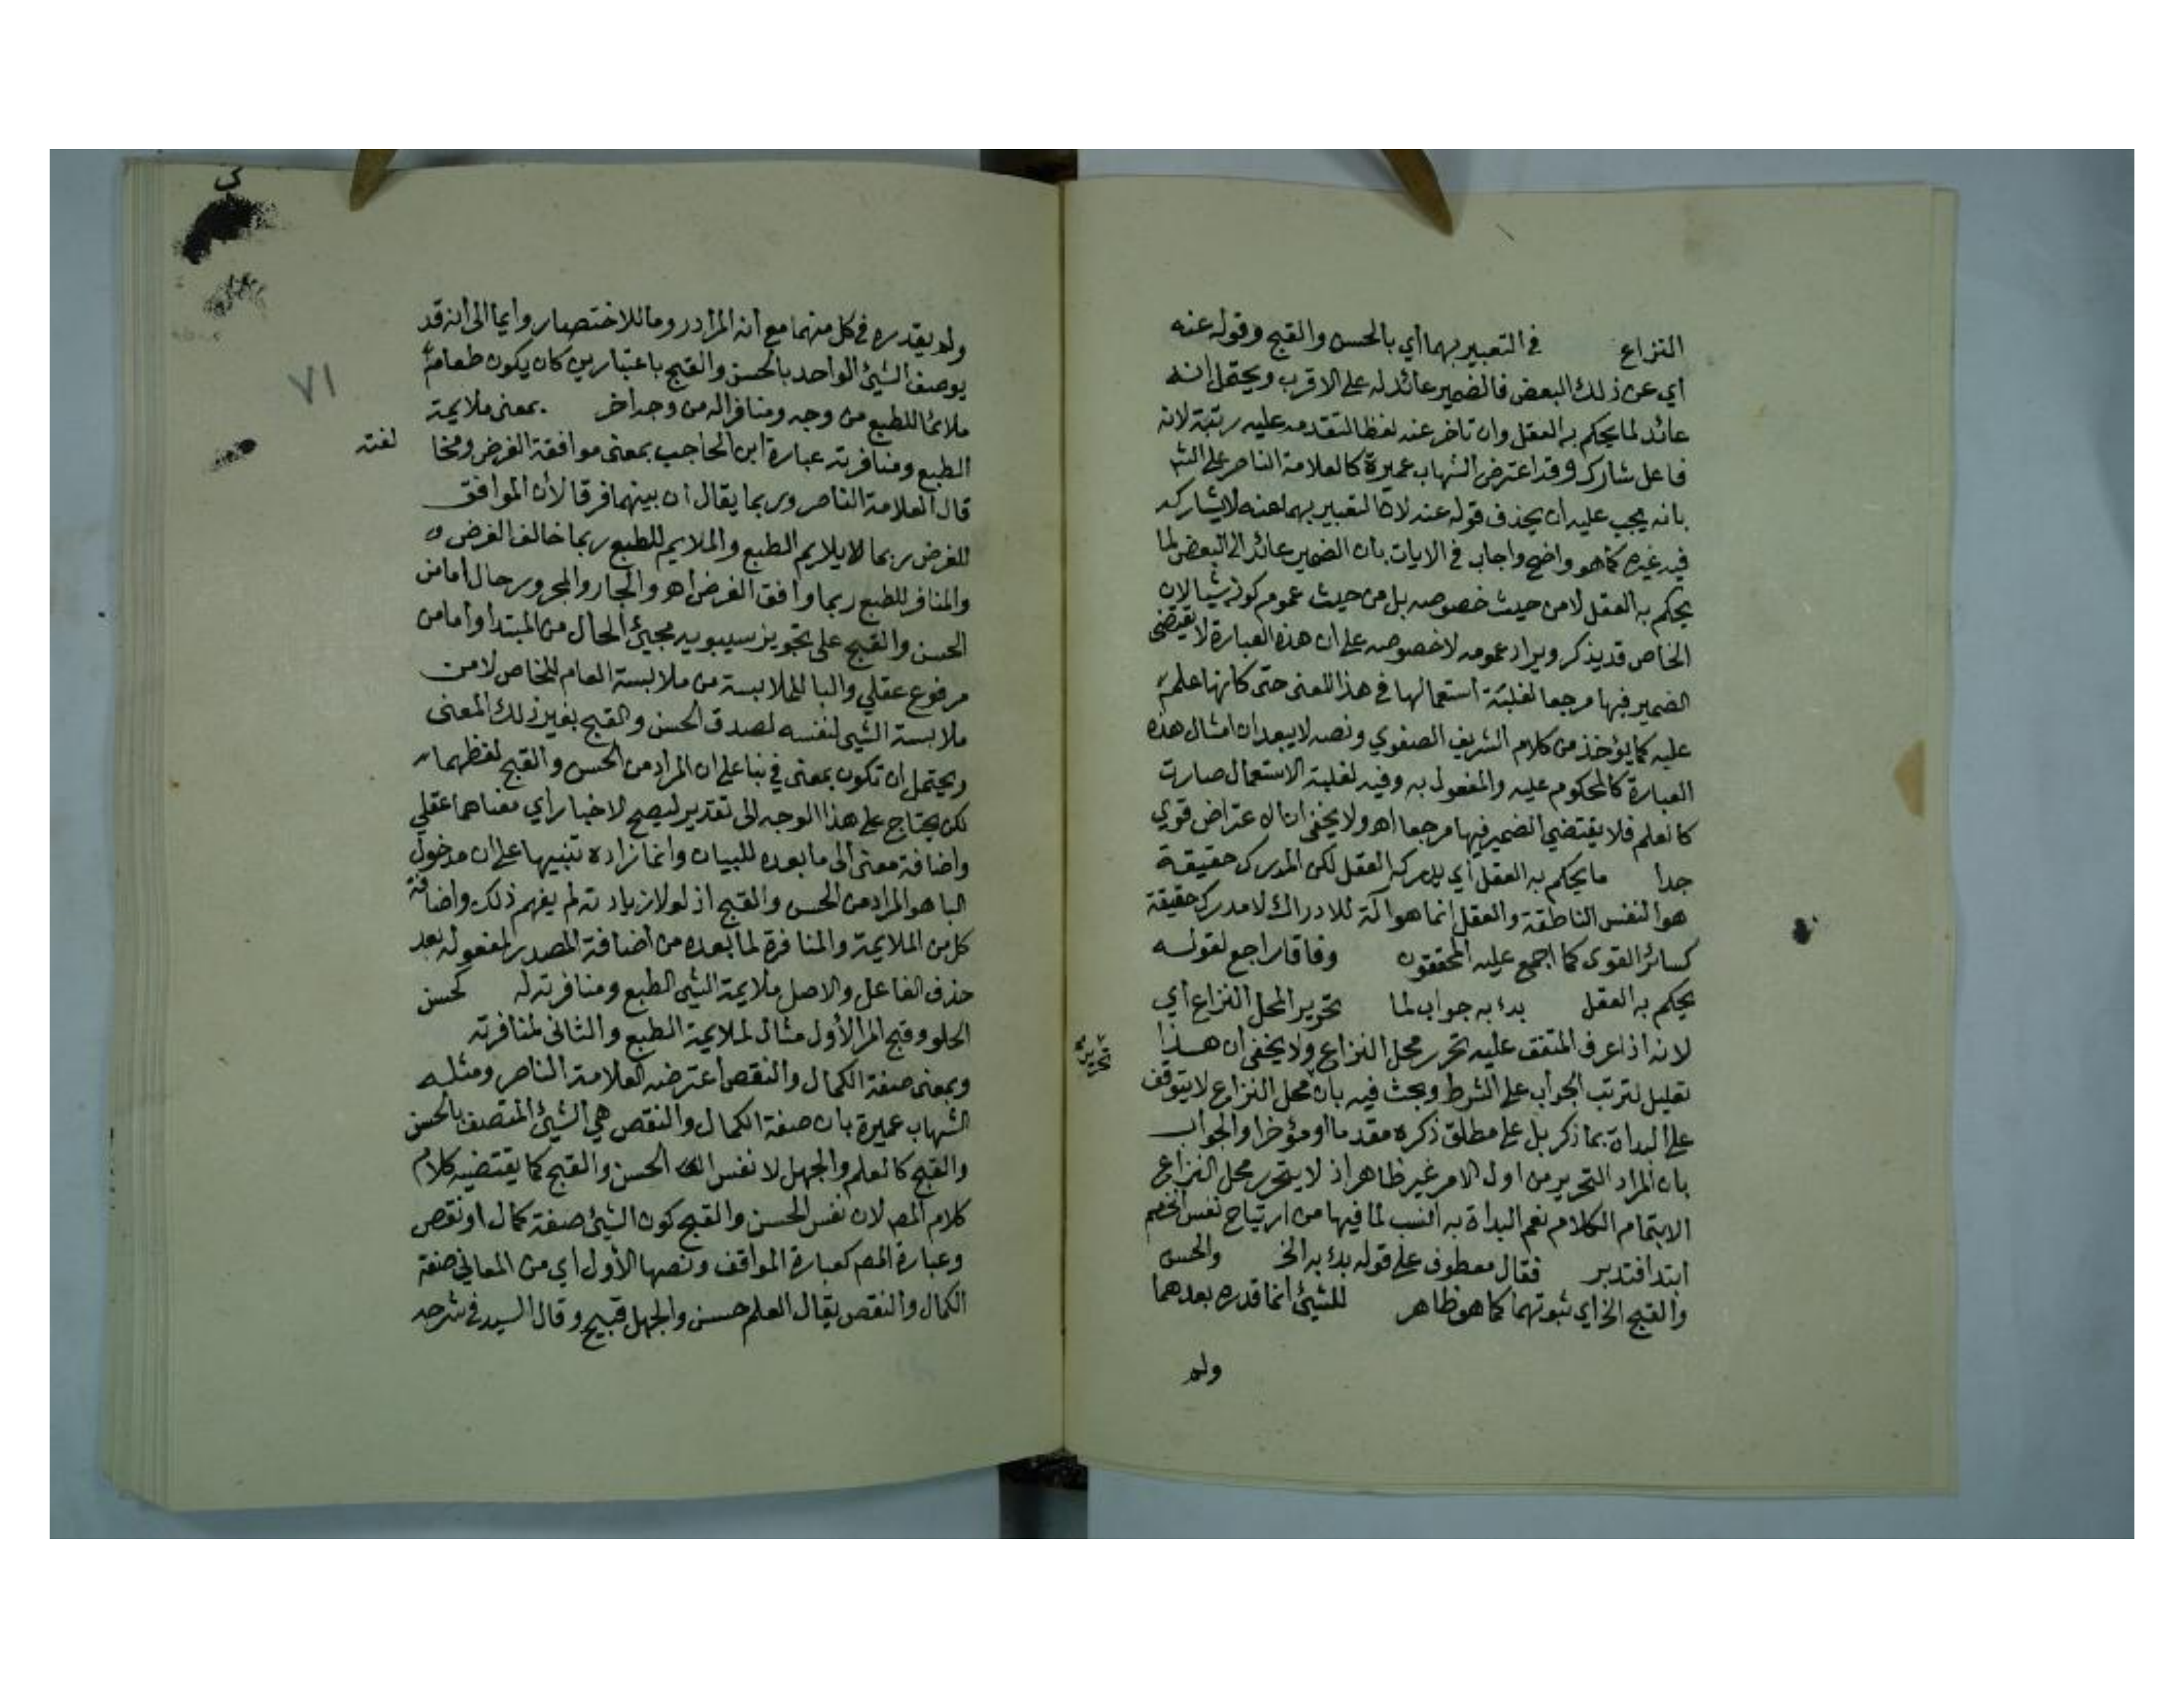 النزاع في التعبير بهما أي بالحسن والقبح وقوله عنه
أي عن ذلك البعض فالضمير عائد له على الاقرب ويحتمل انه
عائد لما يحكم به العقل وان تاخر عنه لفظا لتقدمه عليه رتبة لانه
فاعل شارك وقد اعترض الشهاب عميرة كالعلامة الناصر على الشر
بانه يجب عليه ان يحذف قوله عنه لان التعبير بهما عنه لا يشاركه
فيه غيره كما هو واضح واجاب في الايات بان الضمير عائد الى البعض لما
يحكم به العقل لا من حيث خصوصه بل من حيث عموم كونه شيا لان
الخاص قد يذكر ويراد عمومه لا خصوصه على ان هذه العبارة لا يقتضى
الضمير فيها مرجعا لغلبة استعمالها في هذا المعنى حتى كانها علم
عليه كما يؤخذ من كلام الشريف الصفوي ونصه لا يبعد ان امثال هذه
العبارة كالمحكوم عليه والمفعول به وفيه لغلبة الاستعمال صارت
كالعلم فلا يقتضي الضمير فيها مرجعا اهـ ولا يخفى ان الاعتراض قوي
جدا ما يحكم به العقل أي يدركه العقل لكن المدرك حقيقة
هو النفس الناطقة والعقل انما هو آلة للادراك لا مدرك حقيقة
كسائر القوى كما اجمع عليه المحققون وفاقا راجع لقوله
يحكم به العقل بدء به جواب لما تحرير المحل النزاع أي
لانه اذا عرف المتفق عليه تحرر محل النزاع ولا يخفى أن هذا
تحرير
تعليل لترتب الجواب على الشرط وبحث فيه بان محل النزاع لا يتوقف
على البداة بما ذكر بل على مطلق ذكره مقدما او مؤخرا والجواب
بان المراد التحرير من اول الامر غير ظاهر اذ لا يتحرر محل النزاع
الا بتمام الكلام نعم البداة به انسب لما فيها من ارتياح نفس الخصم
ابتدا فتدبر فقال معطوف على قوله بدء به الخ والحسن
والقبح الخ اي ثبوتهما كما هو ظاهر للشيئ انما قدره بعدهما
ولم
٧١
ولم يقدره في كل منهما مع أنه المراد روما للاختصار وايما الى انه قد
يوصف الشيئ الواحد بالحسن والقبح باعتبارين كان يكون طعام
ملائما للطبع من وجه ومنافرا له من وجه اخر بمعنى ملايمة
الطبع ومنافرته عبارة ابن الحاجب بمعنى موافقة الغرض ومخا
لفته
قال العلامة الناصر وربما يقال ان بينهما فرقا لأن الموافق
للغرض ربما لا يلايم الطبع والملايم للطبع ربما خالف الغرض و
والمنافر للطبع ربما وافق الغرض اهـ والجار والمجرور حال أما من
الحسن والقبح على تجويز سيبويه مجيئ الحال من المبتدا وأما من
مرفوع عقلي والبا للملابسة من ملابسة العام للخاص لا من
ملابسة الشيى لنفسه لصدق الحسن والقبح بغير ذلك المعنى
ويحتمل ان تكون بمعنى في بنا على ان المراد من الحسن والقبح لفظهما
لكن يحتاج على هذا الوجه الى تقدير ليصح الاخبار اي معناهما عقلي
واضافة معنى الى ما بعده للبيان وانما زاده تنبيها على ان مدخول
البا هو المراد من الحسن والقبح اذ لولا زيادته لم يفهم ذلك واضافة
كل من الملايمة والمنافرة لما بعده من اضافة المصدر لمفعوله بعد
حذف الفاعل والاصل ملايمة الشيى الطبع ومنافرته له كحسن
الحلو وقبح المر الأول مثال لملايمة الطبع والثانى لمنافرته
وبمعنى صفة الكمال والنقص اعترضه العلامة الناصر ومثله
الشهاب عميرة بان صفة الكمال والنقص هي الشيئ المتصف بالحسن
والقبح كالعلم والجهل لا نفس الحسن والقبح كما يقتضيه كلام
كلام المص لان نفس الحسن والقبح كون الشيئ صفة كمال او نقص
وعبارة المص كعبارة المواقف ونصها الأول اي من المعاني صفة
الكمال والنقص يقال العلم حسن والجهل قبيح وقال السيد في شرحه